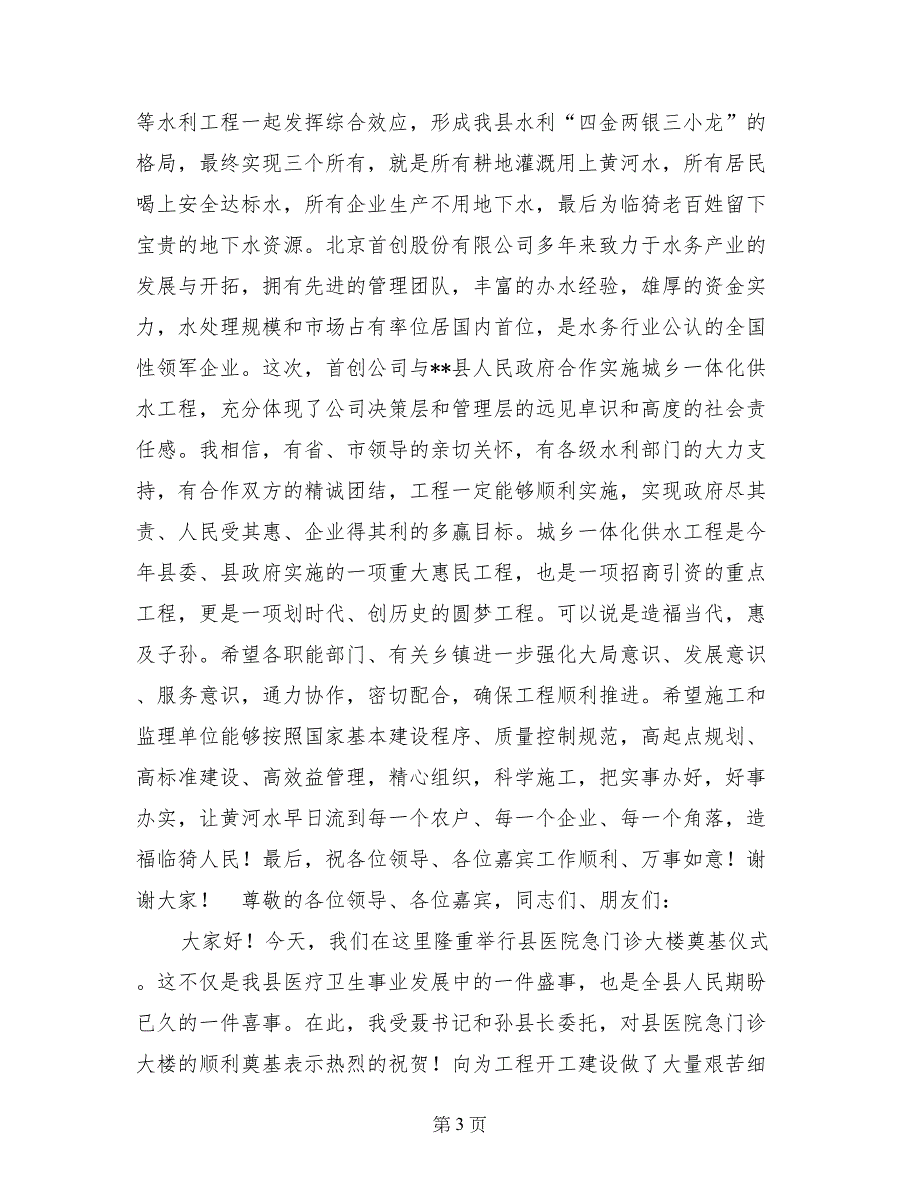 等水利工程一起发挥综合效应，形成我县水利“四金两银三小龙”的
格局，最终实现三个所有，就是所有耕地灌溉用上黄河水，所有居民
喝上安全达标水，所有企业生产不用地下水，最后为临猗老百姓留下
宝贵的地下水资源。北京首创股份有限公司多年来致力于水务产业的
发展与开拓，拥有先进的管理团队，丰富的办水经验，雄厚的资金实
力，水处理规模和市场占有率位居国内首位，是水务行业公认的全国
性领军企业。这次，首创公司与**县人民政府合作实施城乡一体化供
水工程，充分体现了公司决策层和管理层的远见卓识和高度的社会责
任感。我相信，有省、市领导的亲切关怀，有各级水利部门的大力支
持，有合作双方的精诚团结，工程一定能够顺利实施，实现政府尽其
责、人民受其惠、企业得其利的多赢目标。城乡一体化供水工程是今
年县委、县政府实施的一项重大惠民工程，也是一项招商引资的重点
工程，更是一项划时代、创历史的圆梦工程。可以说是造福当代，惠
及子孙。希望各职能部门、有关乡镇进一步强化大局意识、发展意识
、服务意识，通力协作，密切配合，确保工程顺利推进。希望施工和
监理单位能够按照国家基本建设程序、质量控制规范，高起点规划、
高标准建设、高效益管理，精心组织，科学施工，把实事办好，好事
办实，让黄河水早日流到每一个农户、每一个企业、每一个角落，造
福临猗人民！最后，祝各位领导、各位嘉宾工作顺利、万事如意！谢
谢大家！ 尊敬的各位领导、各位嘉宾，同志们、朋友们：
大家好！今天，我们在这里隆重举行县医院急门诊大楼奠基仪式
。这不仅是我县医疗卫生事业发展中的一件盛事，也是全县人民期盼
已久的一件喜事。在此，我受聂书记和孙县长委托，对县医院急门诊
大楼的顺利奠基表示热烈的祝贺！向为工程开工建设做了大量艰苦细
第 3 页